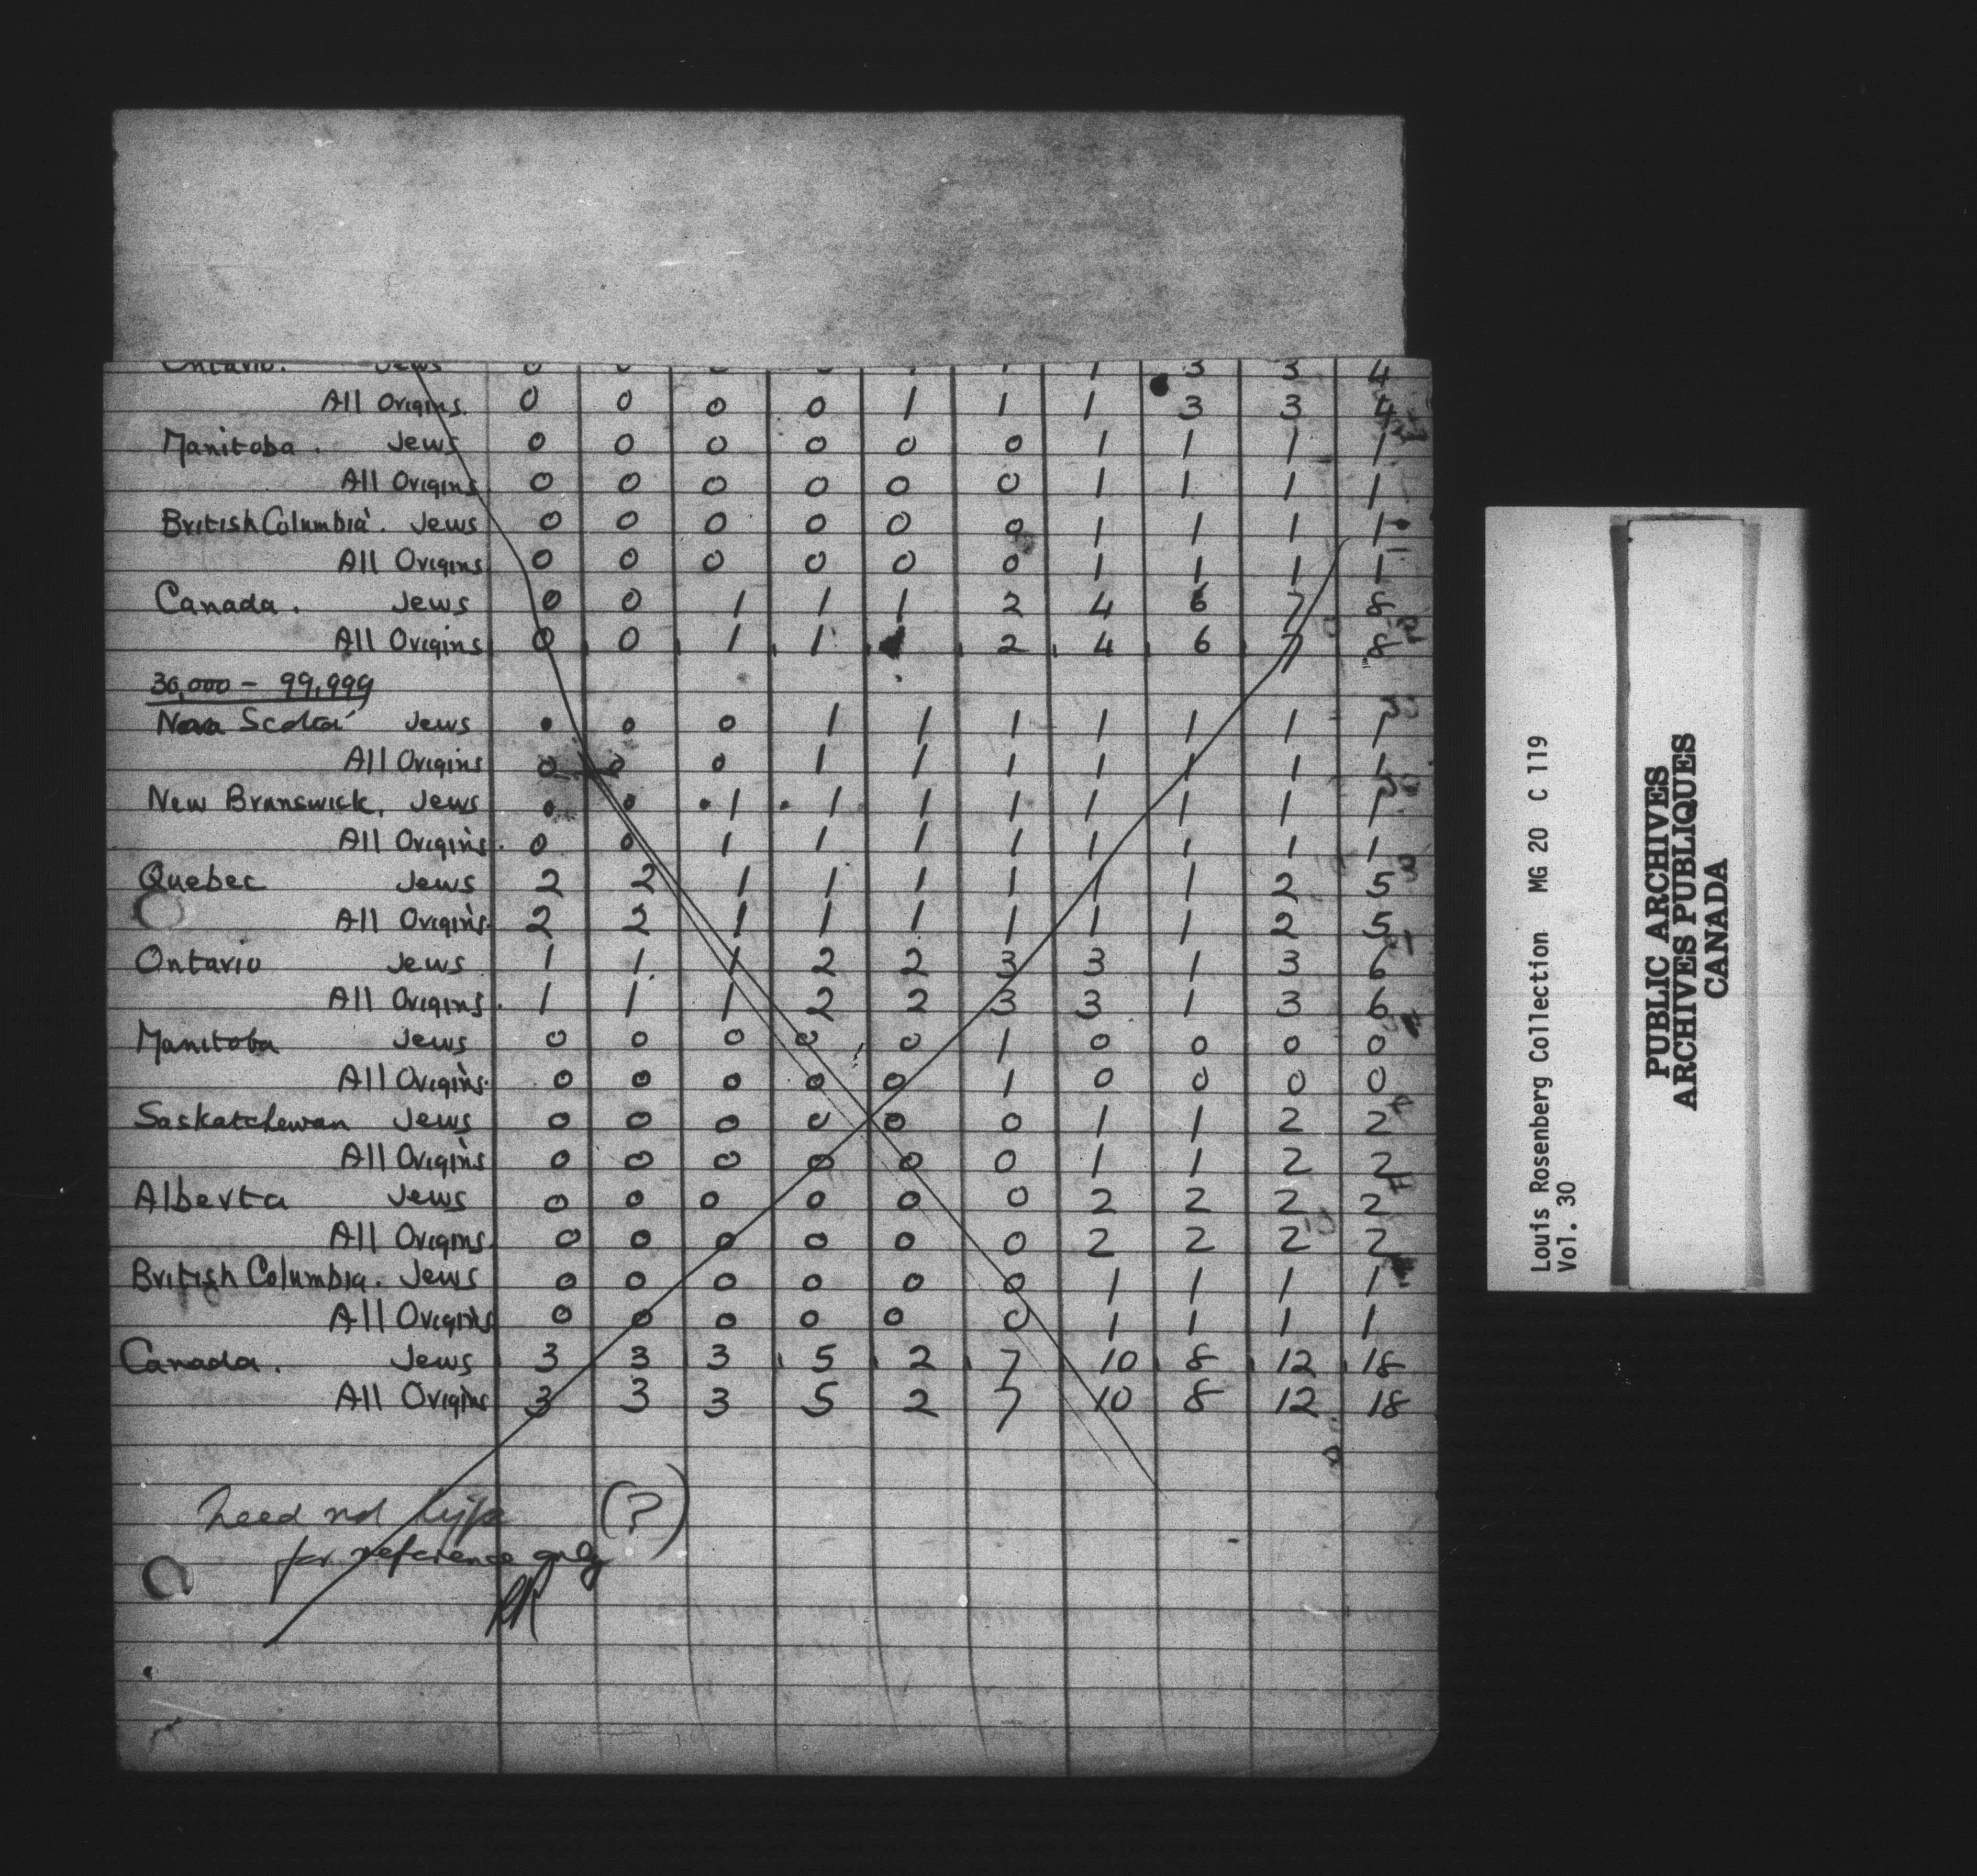 Ontario. Jews 1 3 3 4
All Origins. 0 0 0 0 1 1 1 3 3 4
Manitoba. Jews 0 0 0 0 0 0 1 1 1 1
All Origins 0 0 0 0 0 0 1 1 1 1
British Columbia. Jews 0 0 0 0 0 0 1 1 1 1
All Origins 0 0 0 0 0 0 1 1 1 1
Canada. Jews 0 0 1 1 1 2 4 6 7 8
All Origins 0 0 1 1 2 4 6 7 8
30,000 - 99,999
Nova Scotia Jews 0 0 0 1 1 1 1 1 1 1
All Origins 0 0 0 1 1 1 1 1 1 1
New Brunswick. Jews 0 0 1 1 1 1 1 1 1 1
All Origins. 0 0 1 1 1 1 1 1 1 1
Quebec Jews 2 2 1 1 1 1 1 1 2 5
All Origins. 2 2 1 1 1 1 1 1 2 5
Ontario Jews 1 1 1 2 2 3 3 1 3 6
All Origins. 1 1 1 2 2 3 3 1 3 6
Manitoba Jews 0 0 0 0 0 1 0 0 0 0
All Origins. 0 0 0 0 0 1 0 0 0 0
Saskatchewan Jews 0 0 0 0 0 0 1 1 2 2
All Origins 0 0 0 0 0 0 1 1 2 2
Alberta Jews 0 0 0 0 0 0 2 2 2 2
All Origins. 0 0 0 0 0 0 2 2 2 2
British Columbia. Jews 0 0 0 0 0 0 1 1 1 1
All Origins 0 0 0 0 0 0 1 1 1 1
Canada. Jews 3 3 3 5 2 7 10 8 12 18
All Origins 3 3 3 5 2 7 10 8 12 18
need not type (?)
for reference only
Louis Rosenberg Collection MG 20 C 119
Vol. 30
PUBLIC ARCHIVES
ARCHIVES PUBLIQUES
CANADA